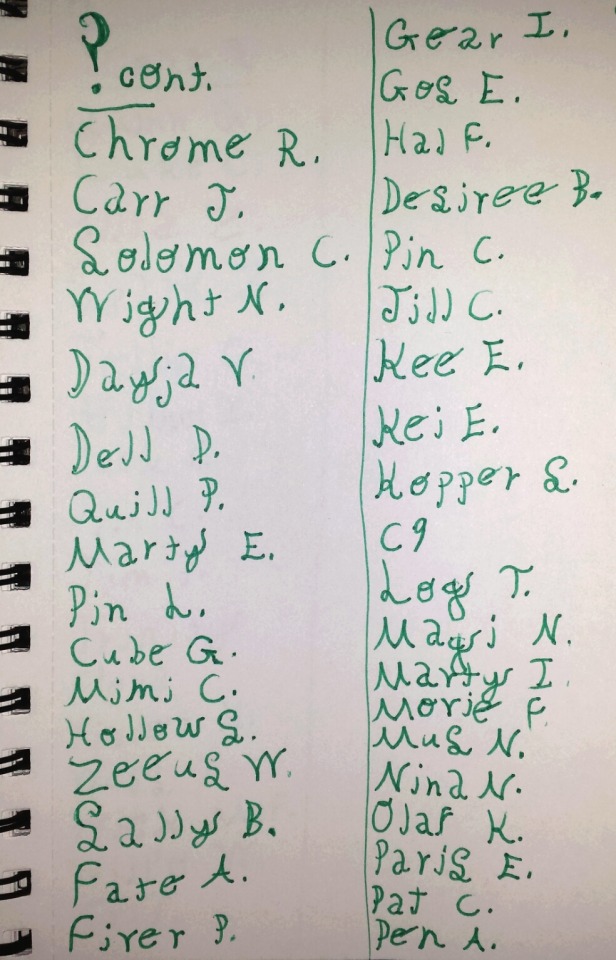 ? cont.
Chrome R.
Carr J.
Solomon C.
Wight N.
Daysja V.
Dell D.
Quill P.
Martys E.
Pin L.
Cube G.
Mimi C.
Hollow S.
Zeeus W.
Sallys B.
Fate A.
Firer P.
Gear I.
Gos E.
Hal F.
Desiree B.
Pin C.
Jill C.
Kee E.
Kei E.
Kopper S.
C9
Logs T.
N.
Martys I.
Morie F.
Mus N.
Nina N.
Olaf K.
Paris E.
Pat C.
Pen A.